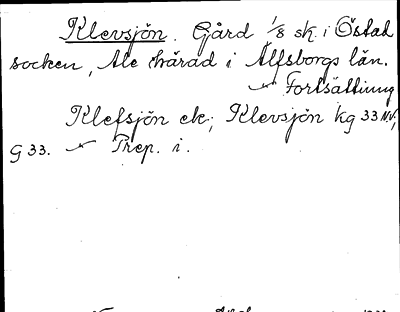 Klevsjön. Gård 1/8 sk. i Östad
socken, Ale härad i Älfsborgs län.
Fortsättning
Klefsjön ek; Klevsjön kg 33 NV,
G 33. Prep. i.